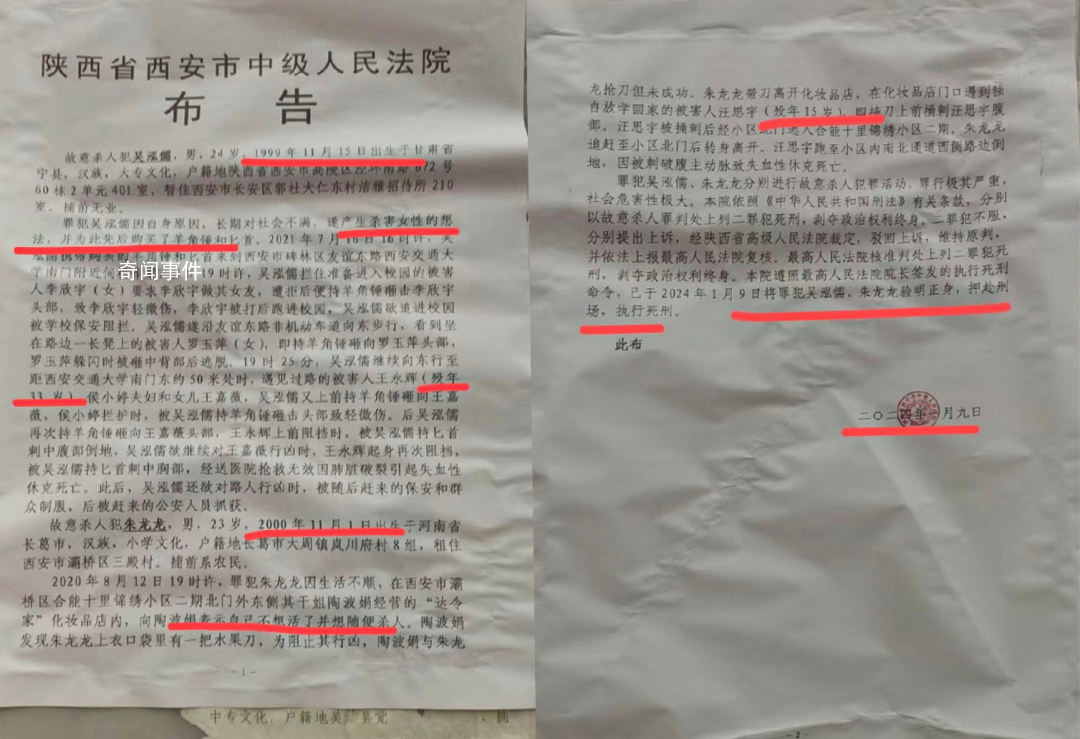 陕西省西安市中级人民法院
布 告
故意杀人犯吴泓儒，男，24岁，1999年11月15日出生于甘肃省
宁县，汉族，大专文化，户籍地陕西省西安市高陵区泾环南路672号
60栋2单元401室，暂住西安市长安区郭杜大仁东村洁雅招待所210
室。捕前无业。
罪犯吴泓儒因自身原因，长期对社会不满，遂产生杀害女性的想
法，并为此先后购买了羊角锤和匕首。2021年7月16日16时许，吴
泓儒携带购买的羊角锤和匕首来到西安市碑林区友谊东路西安交通大
学南门附近伺
19时许，吴泓儒拦住准备进入校园的被害
奇闻事件
人李欣宇（女）要求李欣宇做其女友，遭拒后便持羊角锤砸击李欣宇
头部，致李欣宇轻微伤，李欣宇被打后跑进校园，吴泓儒欲追进校园
被学校保安阻拦。吴泓儒遂沿友谊东路非机动车道向东步行，看到坐
在路边一长凳上的被害人罗玉萍（女），即持羊角锤砸向罗玉萍头部，
罗玉萍躲闪时被砸中背部后逃脱。19时25分，吴泓儒继续向东行至
距西安交通大学南门东约50米处时，遇见过路的被害人王永辉（殁年
33岁）、侯小婷夫妇和女儿王嘉薇，吴泓儒又上前持羊角锤砸向王嘉
薇，侯小婷拦护时，被吴泓儒持羊角锤击头部致轻微伤。后吴泓儒
再次持羊角锤砸向王嘉薇头部，王永辉上前阻挡时，被吴泓儒持匕首
刺中腹部倒地，吴泓儒欲继续对王嘉薇行凶时，王永辉起身再次阻挡，
被吴泓儒持匕首刺中胸部，经送医院抢救无效因肺脏破裂引起失血性
休克死亡。此后，吴泓儒还欲对路人行凶时，被随后赶来的保安和群
众制服，后被赶来的公安人员抓获。
故意杀人犯朱龙龙，男，23岁，2000年11月1日出生于河南省
长葛市，汉族，小学文化，户籍地长葛市大周镇岚川府村8组，租住
西安市灞桥区三殿村。捕前系农民。
2020年8月12日19时许，罪犯朱龙龙因生活不顺，在西安市灞
桥区合能十里锦绣小区二期北门外东侧其干姐陶波娟经营的“达令
家”化妆品店内，向陶波娟表示自己不想活了并想随便杀人。陶波娟
发现朱龙龙上衣口袋里有一把水果刀，为阻止其行凶，陶波娟与朱龙
- 1 -
中专文化，户籍地美 县党
龙抢刀但未成功。朱龙龙带刀离开化妆品店，在化妆品店门口遇到独
自放学回家的被害人汪思宇（殁年15岁），即持刀上前捅刺汪思宇腹
部。汪思宇被捅刺后经小区北门进入合能十里锦绣小区二期，朱龙龙
追赶至小区北门后转身离开。汪思宇跑至小区内南北通道西侧路边倒
地，因被刺破腹主动脉致失血性休克死亡。
罪犯吴泓儒、朱龙龙分别进行故意杀人犯罪活动，罪行极其严重，
社会危害性极大。本院依照《中华人民共和国刑法》有关条款，分别
以故意杀人罪判处上列二罪犯死刑，剥夺政治权利终身。二罪犯不服，
分别提出上诉，经陕西省高级人民法院裁定，驳回上诉，维持原判，
并依法上报最高人民法院复核。最高人民法院核准判处上列二罪犯死
刑，剥夺政治权利终身。本院遵照最高人民法院院长签发的执行死刑
命令，已于2024年1月9日将罪犯吴泓儒、朱龙龙验明正身，押赴刑
场，执行死刑。
此布
二〇二四年一月九日
- 2 -